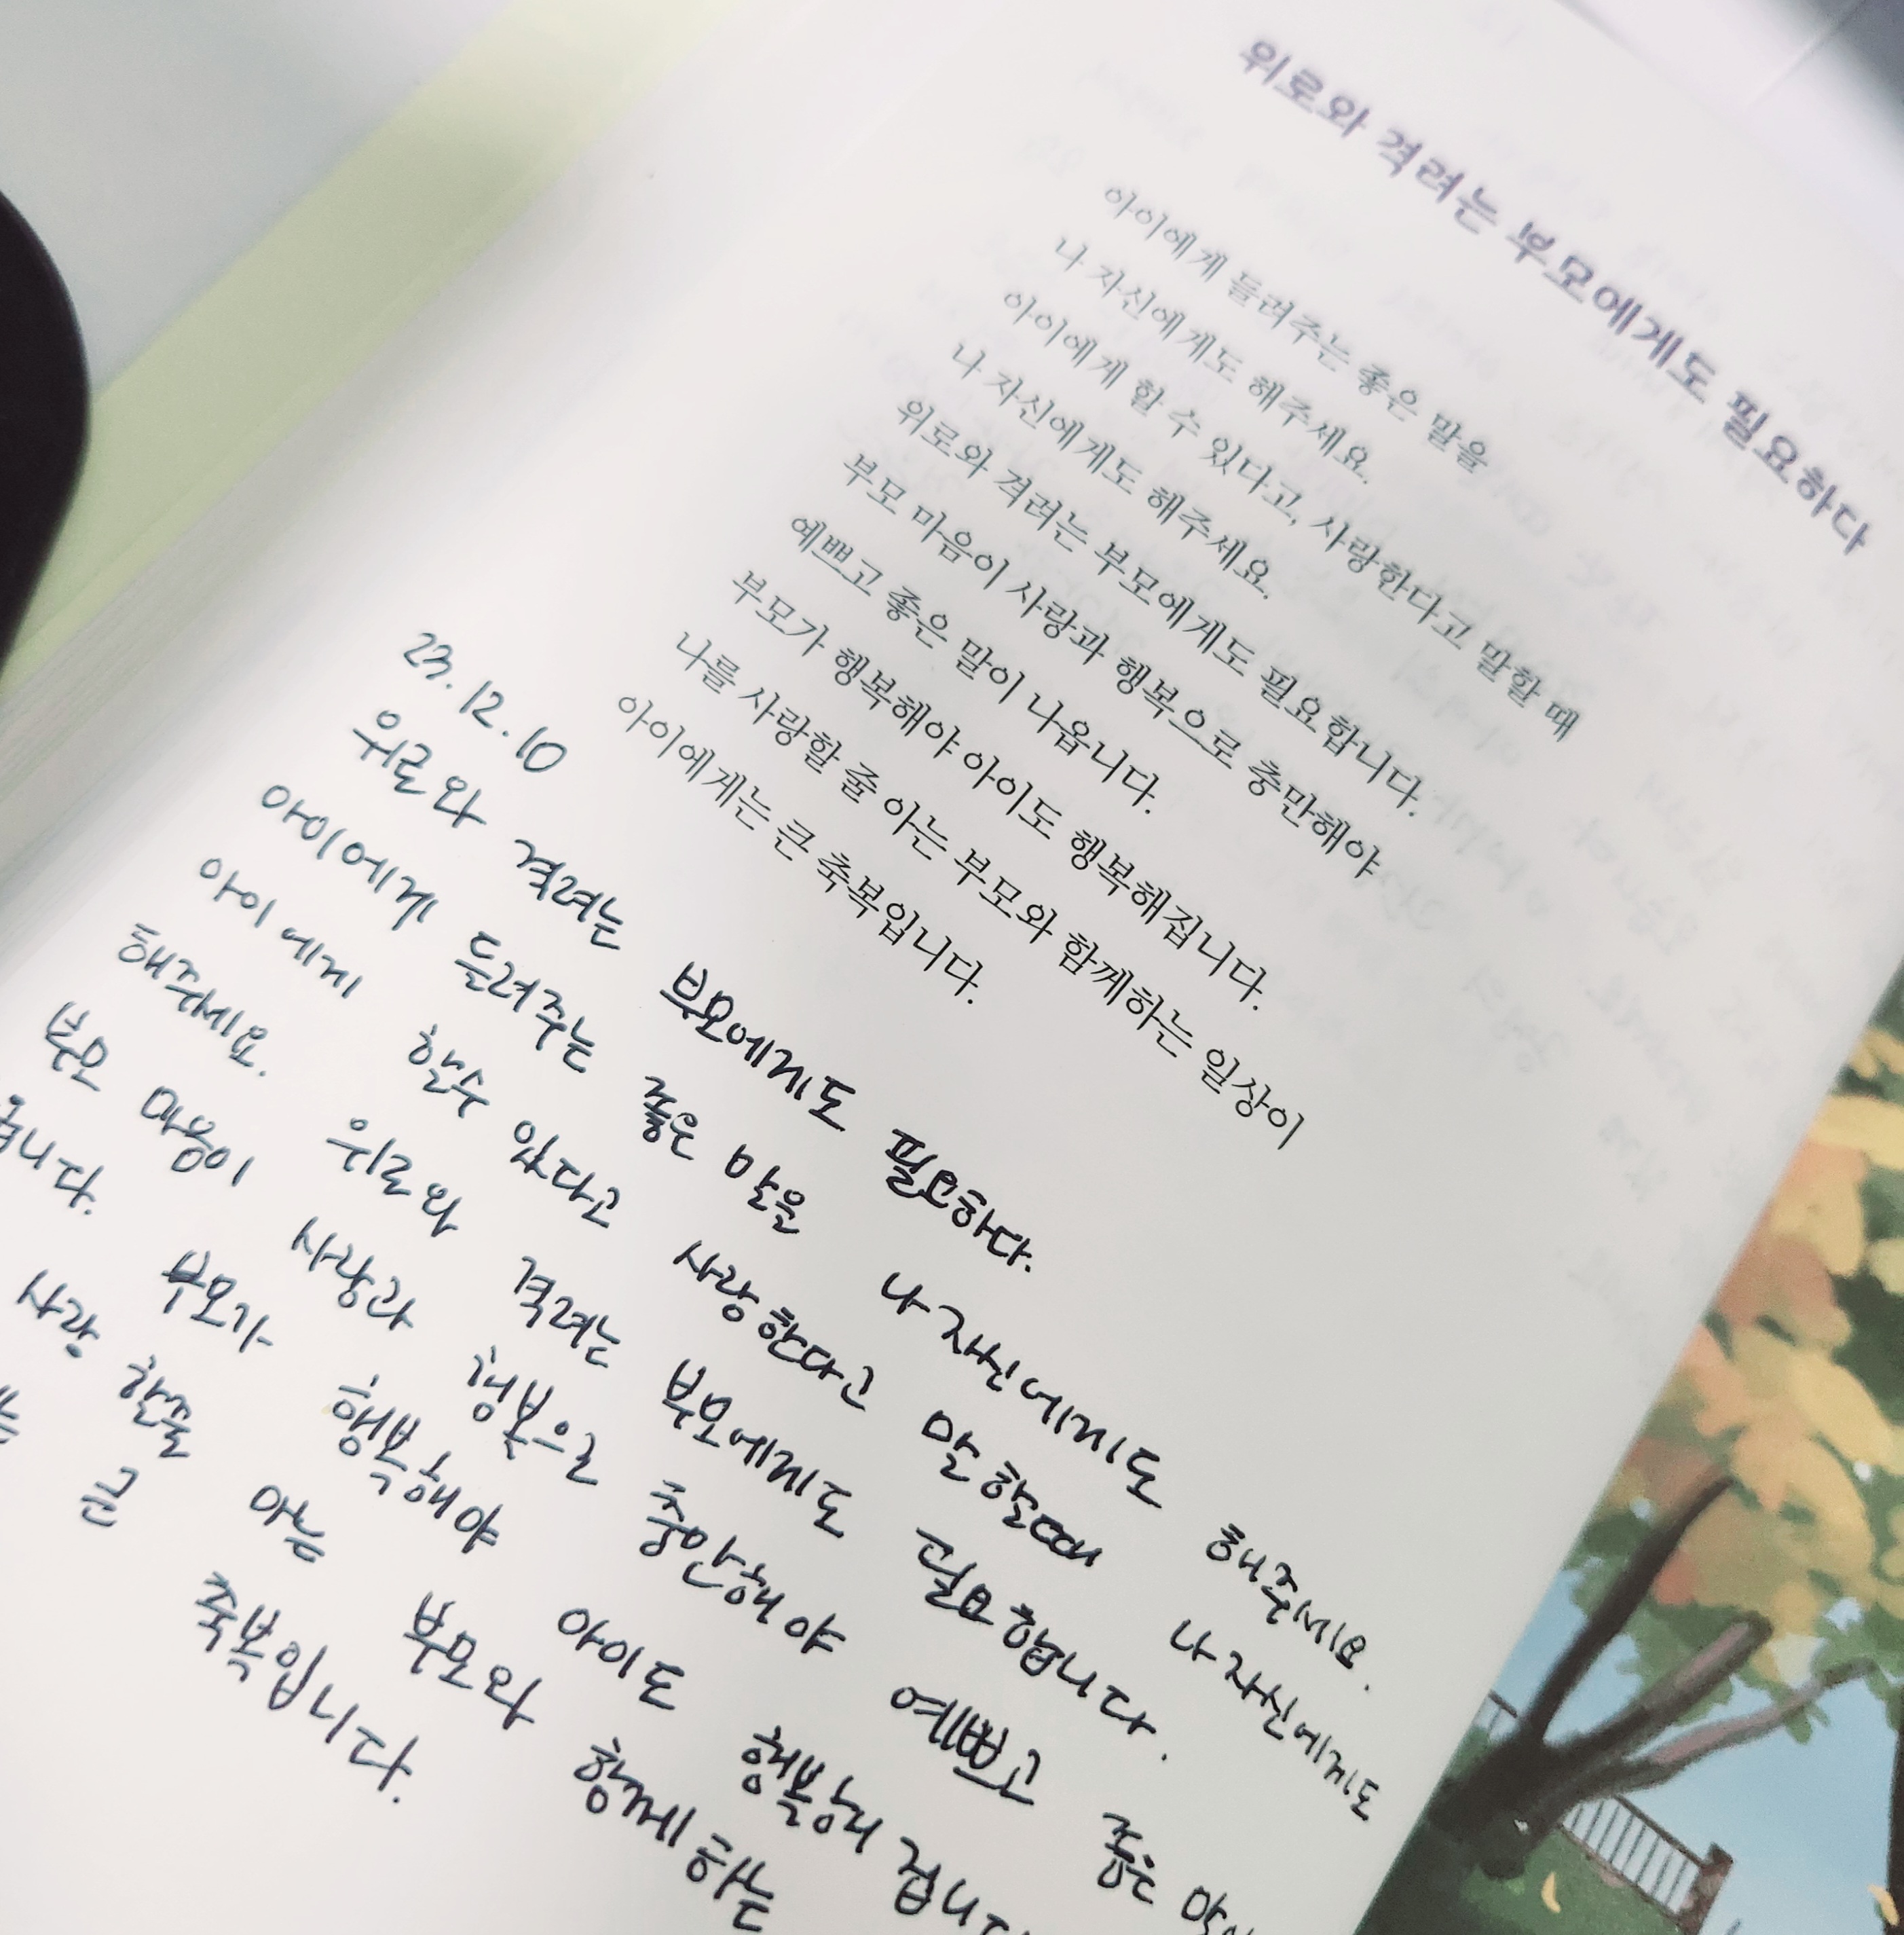 위로와 격려는 부모에게도 필요하다
아이에게 들려주는 좋은 말을
나 자신에게도 해주세요.
아이에게 할 수 있다고, 사랑한다고 말할 때
나 자신에게도 해주세요.
위로와 격려는 부모에게도 필요합니다.
부모 마음이 사랑과 행복으로 충만해야
예쁘고 좋은 말이 나옵니다.
부모가 행복해야 아이도 행복해집니다.
나를 사랑할 줄 아는 부모와 함께하는 일상이
아이에게는 큰 축복입니다.
23. 12. 10
위로와 격려는 부모에게도 필요하다.
아이에게 들려주는 좋은 말을 나 자신에게도 해주세요.
아이에게 할수 있다고 사랑한다고 말할때 나 자신에게도
해주세요. 위로와 격려는 부모에게도 필요합니다.
부모 마음이 사랑과 행복으로 충만해야 예쁘고 좋은
니다. 부모가 행복해야 아이도 행복해집니
사랑할줄 아는 부모와 함께하는
는 큰 축복입니다.